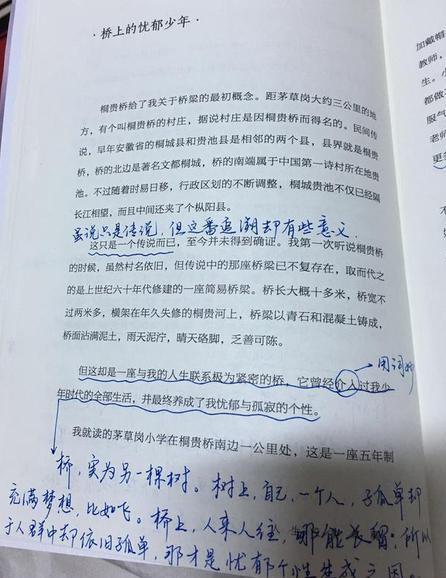 ·桥上的忧郁少年·
桐贵桥给了我关于桥梁的最初概念。距茅草岗大约三公里的地
方，有个叫桐贵桥的村庄，据说村庄是因桐贵桥而得名的。民间传
说，早年安徽省的桐城县和贵池县是相邻的两个县，县界就是桐贵
桥，桥的北边是著名文都桐城，桥的南端属于中国第一诗村所在地贵
池。不过随着时易日移，行政区划的不断调整，桐城贵池不仅已经隔
长江相望，而且中间还夹了个枞阳县。
虽说只是传说，但这番追溯却有些意义.
这只是一个传说而已，至今并未得到确证。我第一次听说桐贵桥
的时候，虽然村名依旧，但传说中的那座桥梁已不复存在，取而代之
的是上世纪六十年代修建的一座简易桥梁。桥长大概十多米，桥宽不
过两米多，横架在年久失修的桐贵河上，桥梁以青石和混凝土铸成，
桥面沾满泥土，雨天泥泞，晴天硌脚，乏善可陈。
用词妙
但这却是一座与我的人生联系极为紧密的桥，它曾经介入过我少
年时代的全部生活，并最终养成了我忧郁与孤寂的个性。
我就读的茅草岗小学在桐贵桥南边一公里处，这是一座五年制
桥，实为另一棵树。树上，自己，一个人，孤单却
充满梦想，比如飞。桥上，人来人往，哪能长留，所以
于人群中却依旧孤单，那才是忧郁个性
加戴帽
教师，
生。小
都做
服气
老师
更多